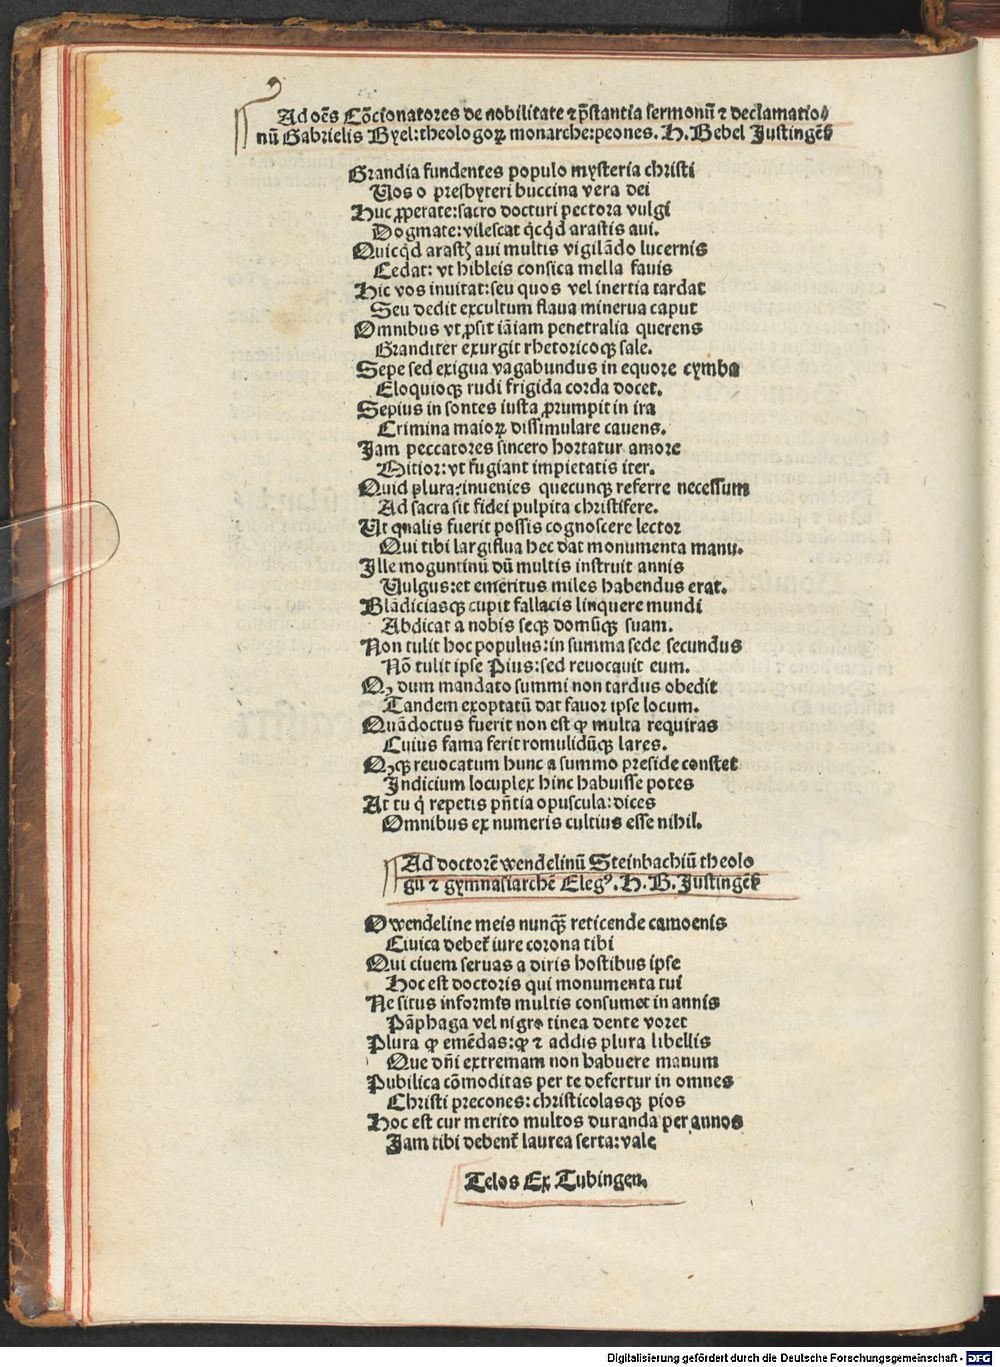 Ad oēs Cōcionatores de nobilitate ⁊ p̄stantia sermonū ⁊ declamatio⸗
nū Gabrielis Byel: theologoꝝ monarche: peones. H. Bebel Justingēs
Grandia fundentes populo mysteria christi
Uos o presbyteri buccina vera dei
Huc ꝓperate: sacro docturi pectora vulgi
Dogmate: vilescat qͥcqͥd arastis aui.
Quicqͥd arastꝭ aui multis vigilādo lucernis
Cedat: vt hibleis consica mella fauis
Hic vos inuitat: seu quos vel inertia tardat
Seu dedit excultum flaua minerua caput
Omnibus vt ꝓsit iāiam penetralia querens
Granditer exurgit rhetoricoqꝫ sale.
Sepe sed exigua vagabundus in equore cymba
Eloquioqꝫ rudi frigida corda docet.
Sepius in sontes iusta ꝓrumpit in ira
Crimina maioꝝ dissimulare cauens.
Jam peccatores sincero hortatur amore
Mitior: vt fugiant impietatis iter.
Quid plura: inuenies quecunqꝫ referre necessum
Ad sacra sit fidei pulpita christifere.
Ut qualis fuerit possis cognoscere lector
Qui tibi largiflua hec dat monumenta manu.
Ille moguntinū dū multis instruit annis
Uulgus: et emeritus miles habendus erat.
Blādiciasqꝫ cupit fallacis linquere mundi
Abdicat a nobis seqꝫ domūqꝫ suam.
Non tulit hoc populus: in summa sede secundus
Nō tulit ipse Pius: sed reuocauit eum.
Qꝫ dum mandato summi non tardus obedit
Tandem exoptatū dat fauor ipse locum.
Quādoctus fuerit non est ꝙ multa requiras
Cuius fama ferit romulidūqꝫ lares.
Qꝫqꝫ reuocatum hunc a summo preside constet
Indicium locuplex hinc habuisse potes
At tu qͥ repetis pn̄tia opuscula: dices
Omnibus ex numeris cultius esse nihil.
Ad doctorē wendelinū Steinbachiū theolo
gū ⁊ gymnasiarchē Elegꝰ. H. B. Justingēs
O wendeline meis nunqꝫ̄ reticende camoenis
Ciuica debet᷑ iure corona tibi
Qui ciuem seruas a diris hostibus ipse
Hoc est doctoris qui monumenta tui
Ne situs informis multis consumet in annis
Pāphaga vel nigro tinea dente voret
Plura ꝙ emēdas: ꝙ ⁊ addis plura libellis
Que dn̄i extremam non habuere manum
Pubilica cōmoditas per te defertur in omnes
Christi precones: christicolasqꝫ pios
Hoc est cur merito multos duranda per annos
Jam tibi debent᷑ laurea serta: vale
Telos Ex Tubingen.
Digitalisierung gefördert durch die Deutsche Forschungsgemeinschaft - DFG